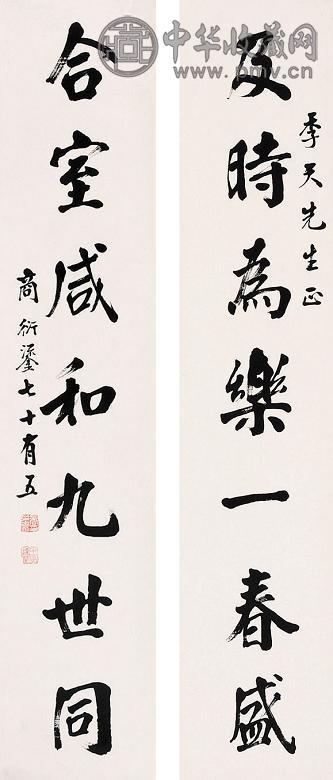 季天先生正
及時為樂一春盛
合室咸和九世同
商衍鎏七十有五
中华收藏网
www.pmcv.cn